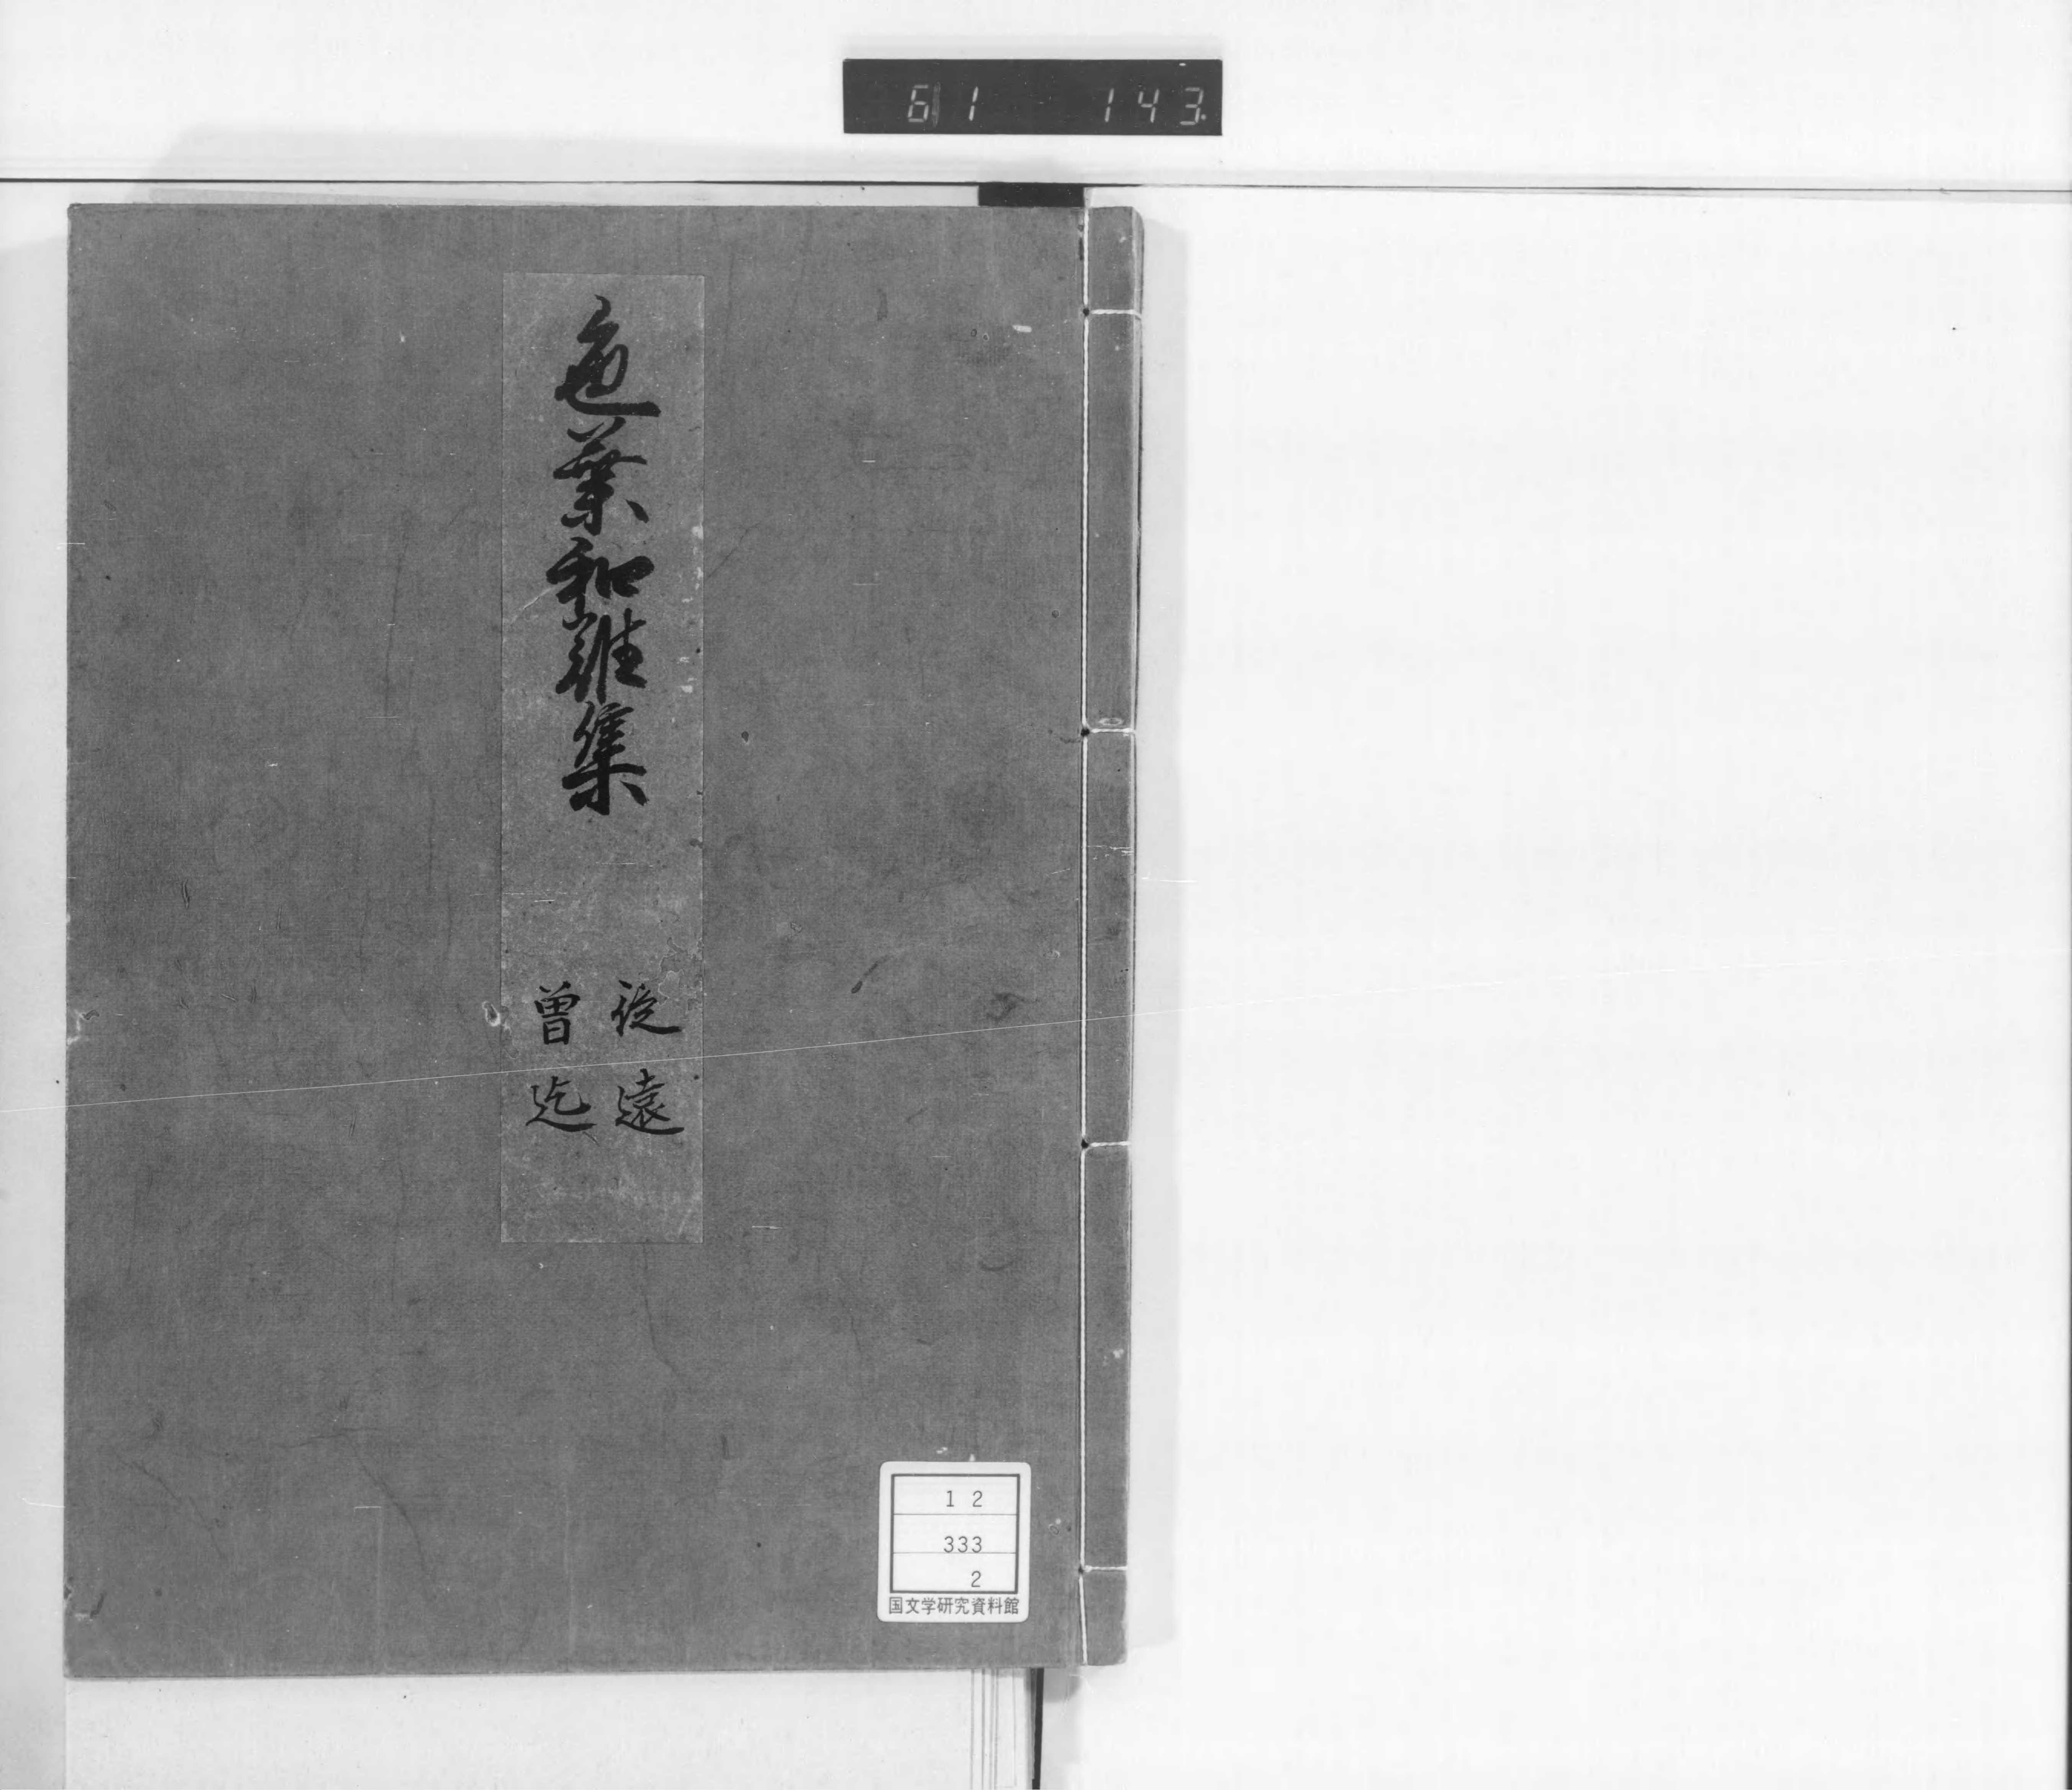 61 143
色葉和難集
従遠
曽迄
12
333
2
国文学研究資料館